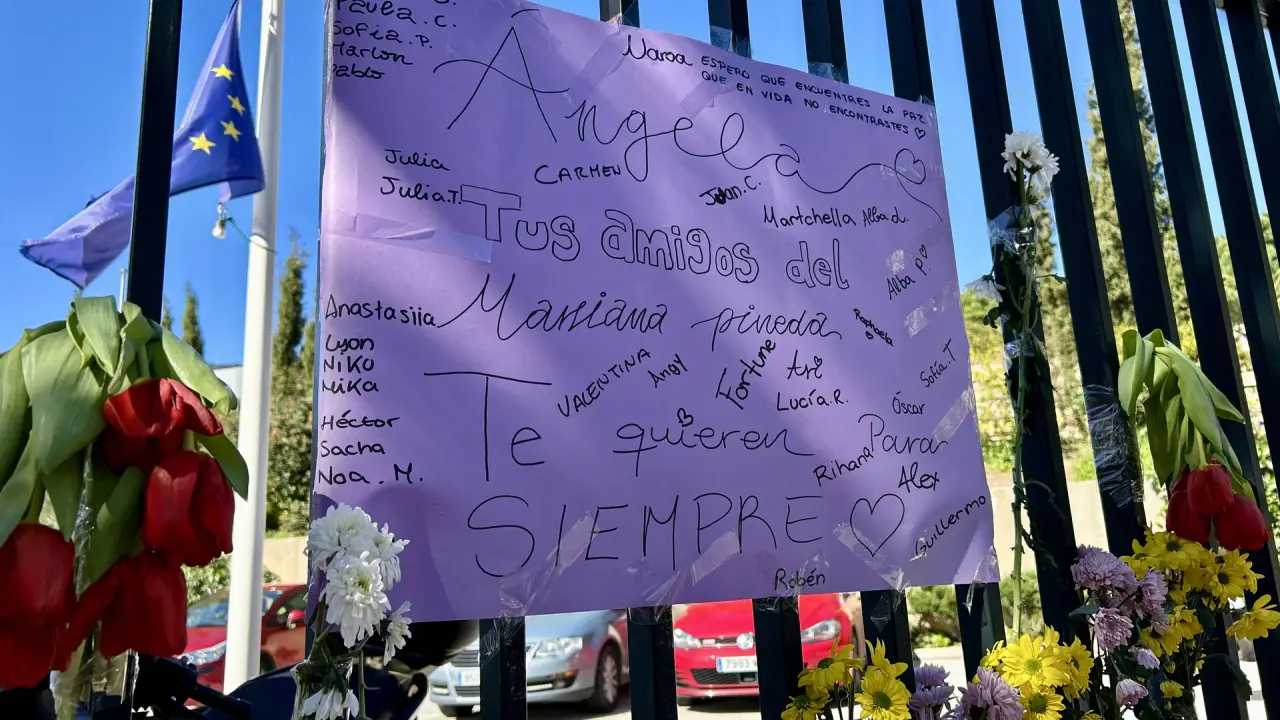 Paula.C.
Sofía.P.
Marlon
Pablo
Naroa ESPERO QUE ENCUENTRES LA PAZ
QUE EN VIDA NO ENCONTRASTES
Angela
Julia
Julia.T.
CARMEN
Juan.C.
Martchella Alba d.
Alba P.
Tus amigos del
Mariana pineda
Raphaela
Anastasiia
Lyon
NiKo
MiKa
Héctor
Sacha
Noa.M.
VALENTINA
Andy
Fortune
Ari
Lucía.R.
Óscar
Sofía.T
Te quieren Para
Rihana
Alex
SIEMPRE
Guillermo
Robén
7993